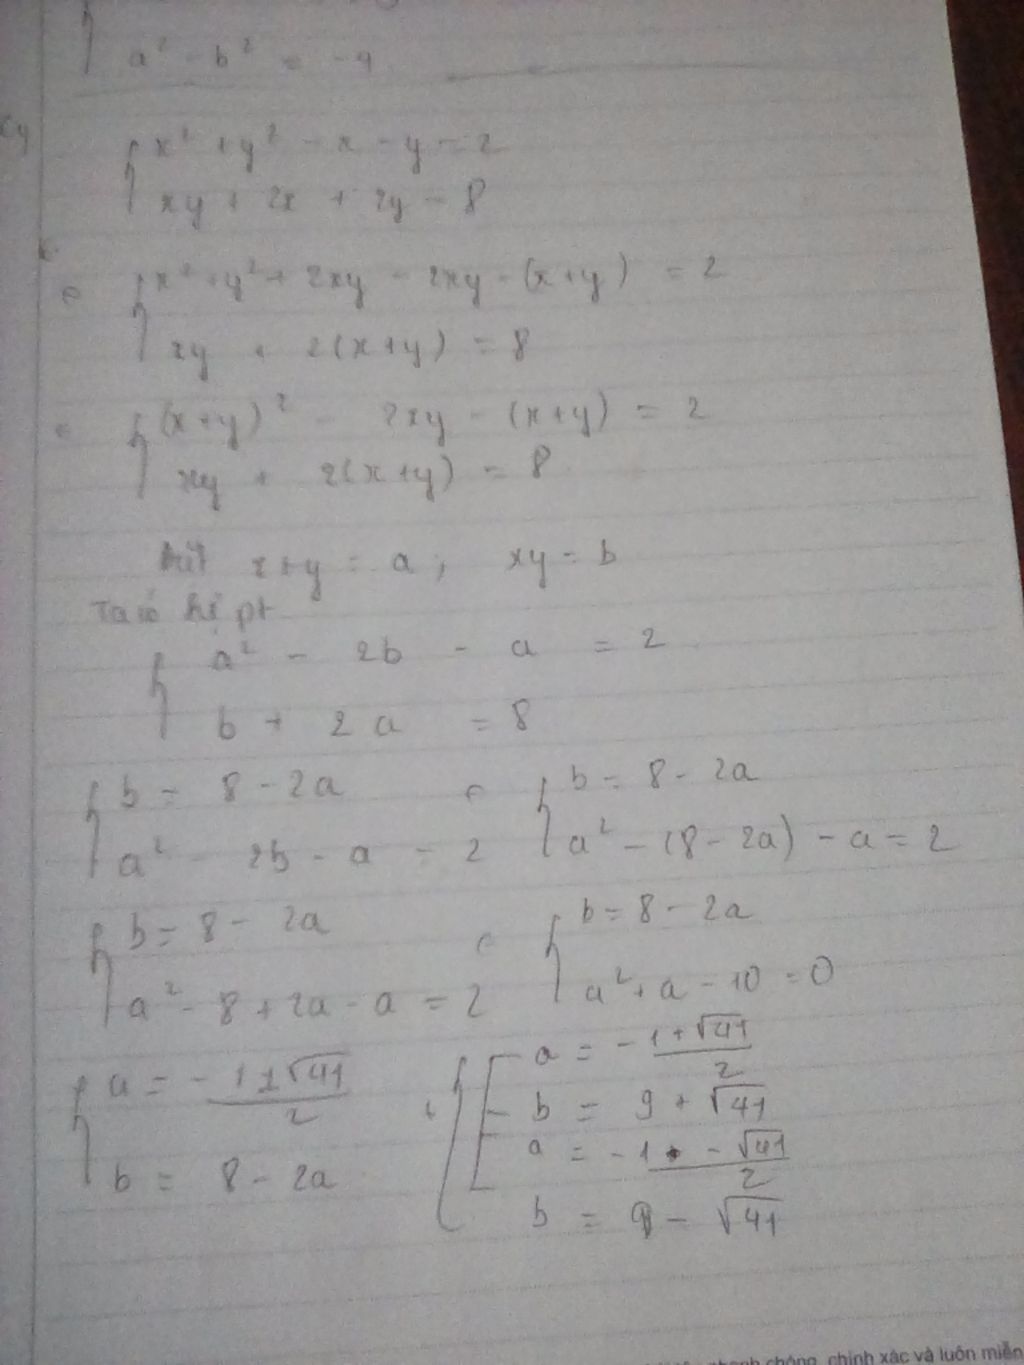 a² - b² = -9
c,
{ x² + y² - x - y = 2
xy + 2x + 2y = 8
{ x² + y² + 2xy - 2xy - (x+y) = 2
xy + 2(x+y) = 8
{ (x+y)² - 2xy - (x+y) = 2
xy + 2(x+y) = 8
Đặt x+y = a; xy = b
Ta có hệ pt
{ a² - 2b - a = 2
b + 2a = 8
{ b = 8 - 2a { b = 8 - 2a
a² - 2b - a = 2 a² - (8 - 2a) - a = 2
{ b = 8 - 2a { b = 8 - 2a
a² - 8 + 2a - a = 2 a² + a - 10 = 0
{ a = -1±√41/2 { [ a = -1+√41/2
b = 8 - 2a b = 9 + √41
a = -1-√41/2
b = 9 - √41
chóng, chính xác và luôn miễn